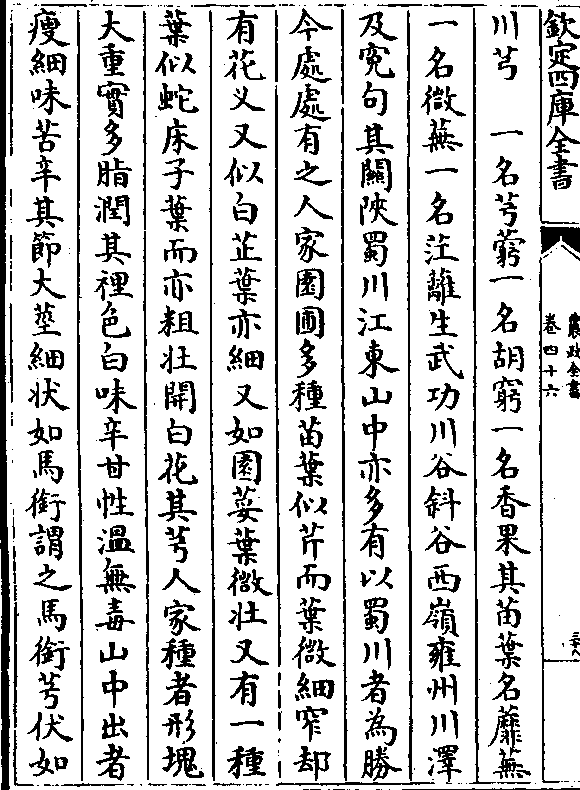 欽定四庫全書
農政全書
卷四十六
川芎　一名芎藭一名胡窮一名香果其苗葉名蘼蕪
一名薇蕪一名茳蘺生武功川谷斜谷西嶺雍州川澤
及冤句其關陝蜀川江東山中亦多有以蜀川者為勝
今處處有之人家園圃多種苗葉似芹而葉微細窄却
有花义又似白芷葉亦細又如園荽葉微壮又有一種
葉似蛇床子葉而亦粗壮開白花其芎人家種者形塊
大重實多脂潤其裡色白味辛甘性溫無毒山中出者
瘦細味苦辛其節大莖細状如馬銜謂之馬銜芎伏如